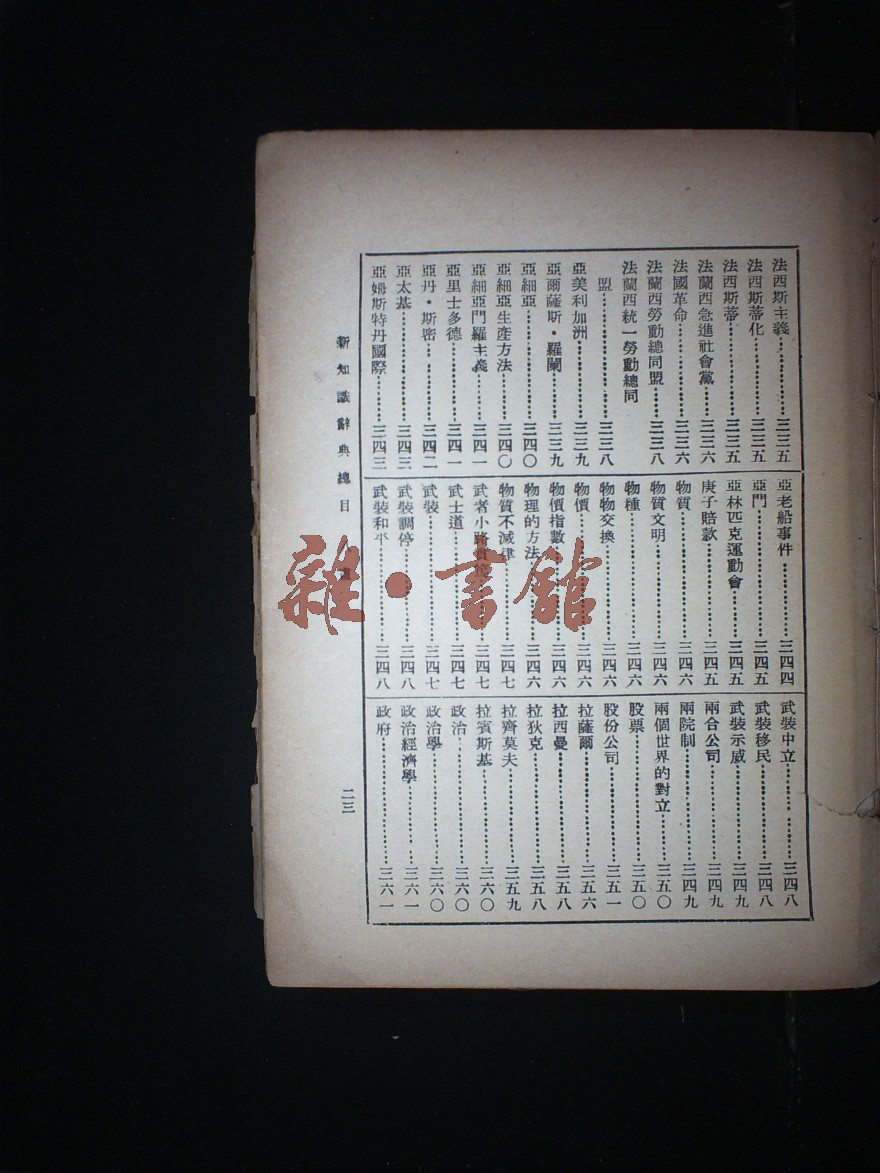 法西斯主義……三三五
法西斯蒂化……三三五
法西斯蒂……三三五
法蘭西急進社會黨……三三六
法國革命……三三六
法蘭西勞動總同盟……三三八
法蘭西統一勞動總同
盟……三三八
亞美利加洲……三三九
亞爾薩斯·羅闌……三三九
亞細亞……三四〇
亞細亞生產方法……三四〇
亞細亞門羅主義……三四一
亞里士多德……三四一
亞丹·斯密……三四二
亞太基……三四三
亞姆斯特丹國際……三四三
亞老船事件……三四四
亞門……三四五
亞林匹克運動會……三四五
庚子賠款……三四五
物質……三四六
物質文明……三四六
物種……三四六
物物交換……三四六
物價……三四六
物價指數……三四六
物理的方法……三四六
物質不滅律……三四七
武者小路……三四七
武士道……三四七
武裝……三四七
武裝調停……三四八
武裝和平……三四八
武裝中立……三四八
武裝移民……三四八
武裝示威……三四九
兩合公司……三四九
兩院制……三四九
兩個世界的對立……三五〇
股票……三五〇
股份公司……三五一
拉薩爾……三五六
拉西曼……三五八
拉狄克……三五八
拉齊莫夫……三五九
拉賓斯基……三六〇
政治……三六〇
政治學……三六〇
政治經濟學……三六一
政府……三六一
新知識辭典總目
二三
雜·書館